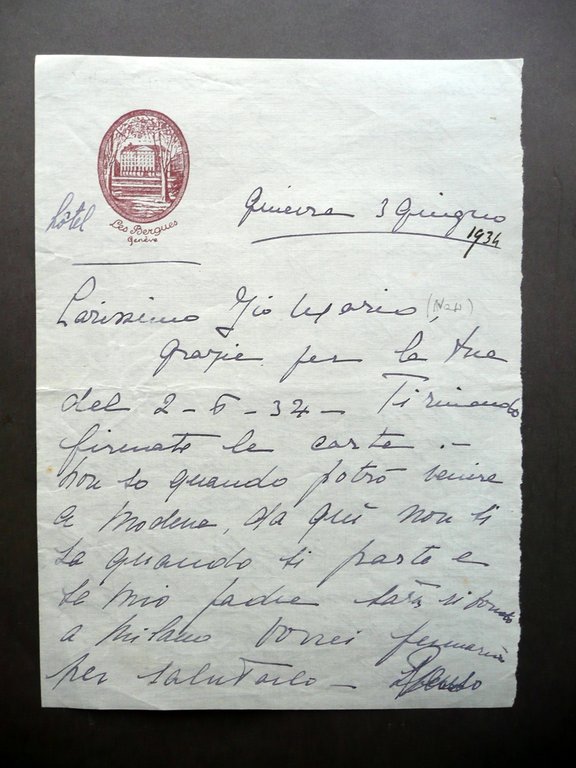 Les Bergues
Genève
hôtel
Ginevra 3 Giugno
1934
Carissimo Zio Mario,
Grazie per la tua
del 2-6-34 - Ti rimando
firmate le carte. -
Non so quando potrò venire
a Modena, da qui non si
sa quando si parte e
se mio padre sarà
a Milano vorrei fermarmi
per salutarlo -